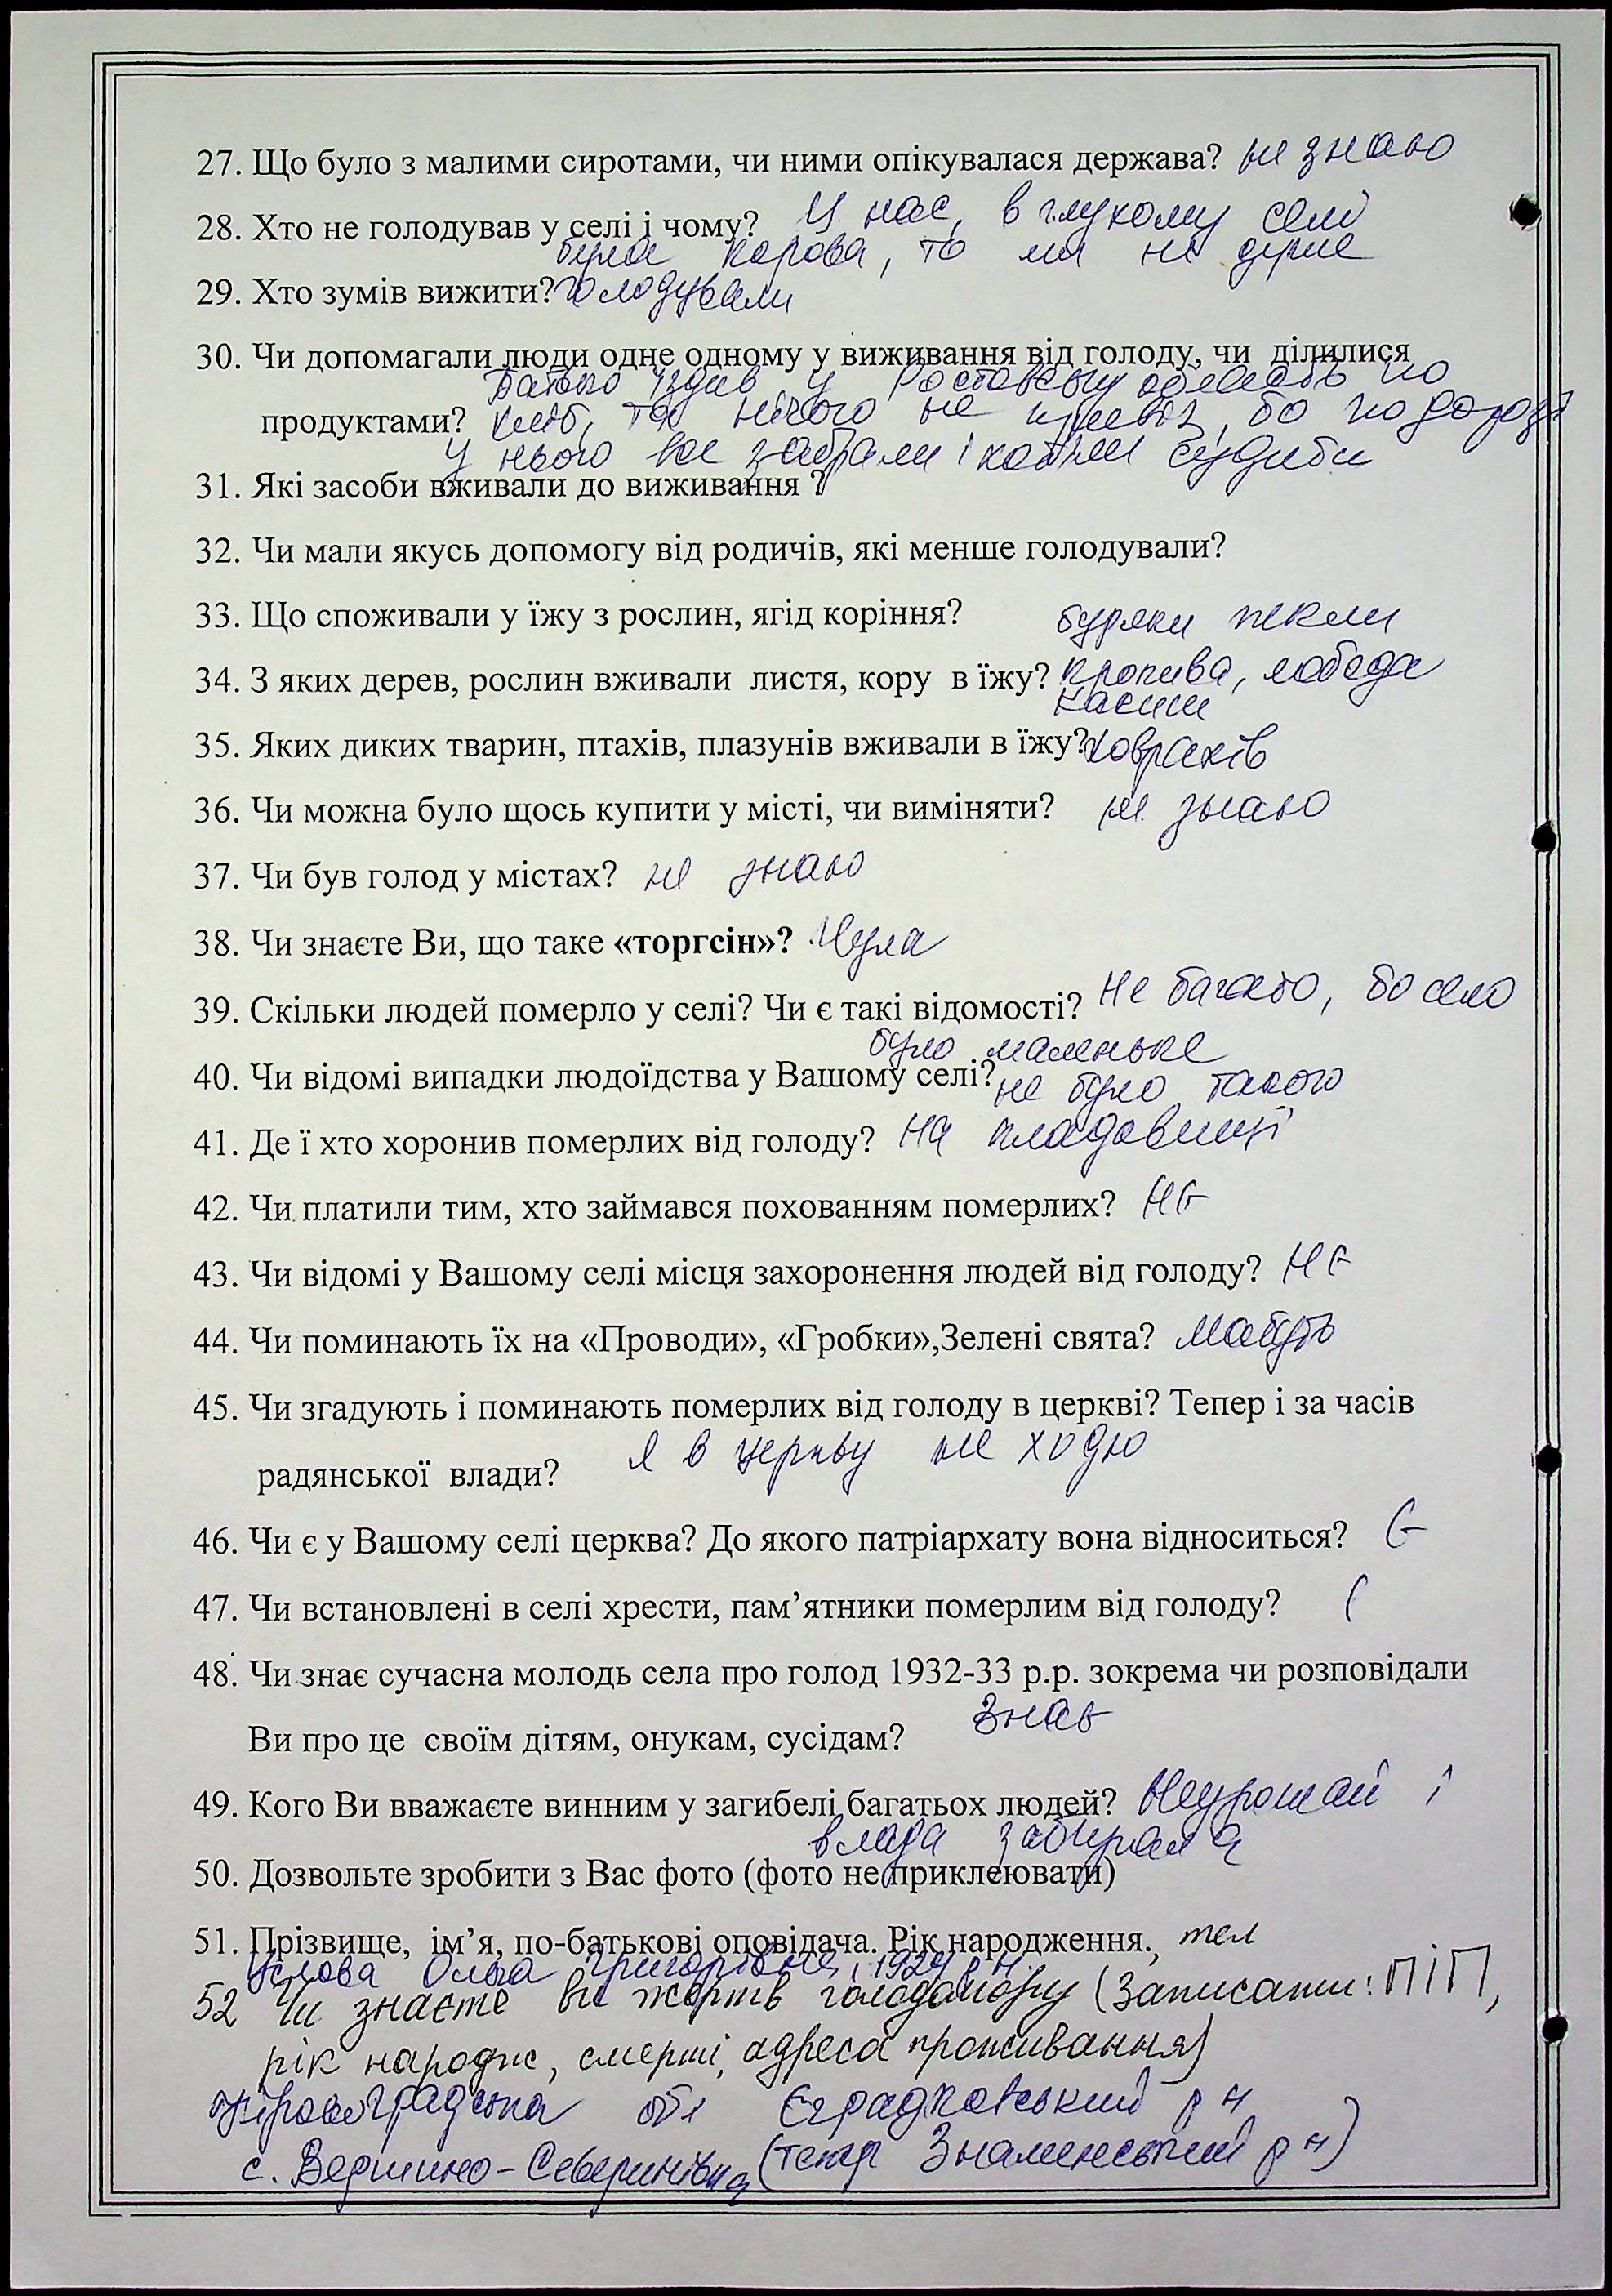 27. Що було з малими сиротами, чи ними опікувалася держава? не знаю
28. Хто не голодував у селі і чому? У нас, в глухому селі
була корова, то ми не дуже
29. Хто зумів вижити? голодували
30. Чи допомагали люди одне одному у виживання від голоду, чи ділилися
Батько їздив у Ростовську область по
продуктами? хліб, та нічого не привіз, бо по дорозі
у нього все забрали і хотіли судити
31. Які засоби вживали до виживання ?
32. Чи мали якусь допомогу від родичів, які менше голодували?
33. Що споживали у їжу з рослин, ягід коріння? буряки пекли
34. З яких дерев, рослин вживали листя, кору в їжу? Кропива, лобода
калачики
35. Яких диких тварин, птахів, плазунів вживали в їжу? ховрахів
36. Чи можна було щось купити у місті, чи виміняти? не знаю
37. Чи був голод у містах? не знаю
38. Чи знаєте Ви, що таке «торгсін»? Чула
39. Скільки людей померло у селі? Чи є такі відомості? Не багато, бо село
було маленьке
40. Чи відомі випадки людоїдства у Вашому селі? не було такого
41. Де ї хто хоронив померлих від голоду? На кладовищі
42. Чи платили тим, хто займався похованням померлих? НЄ
43. Чи відомі у Вашому селі місця захоронення людей від голоду? НЄ
44. Чи поминають їх на «Проводи», «Гробки»,Зелені свята? Мабуть
45. Чи згадують і поминають померлих від голоду в церкві? Тепер і за часів
радянської влади? Я в церкву не ходю
46. Чи є у Вашому селі церква? До якого патріархату вона відноситься? Є
47. Чи встановлені в селі хрести, пам’ятники померлим від голоду?
48. Чи знає сучасна молодь села про голод 1932-33 р.р. зокрема чи розповідали
Ви про це своїм дітям, онукам, сусідам? Знає
49. Кого Ви вважаєте винним у загибелі багатьох людей? Неурожай і
влада забирала
50. Дозвольте зробити з Вас фото (фото не приклеювати)
51. Прізвище, ім’я, по-батькові оповідача. Рік народження., тел
Ольга Григорівна, 1924 р.н.
52 Чи знаєте ви жертв голодомору (Записати: ПІП,
рік народж, смерті, адреса проживання)
Кіровоградська обл Єградковський р н
с. Вершино-Северинівка (тепер Знаменський р н)